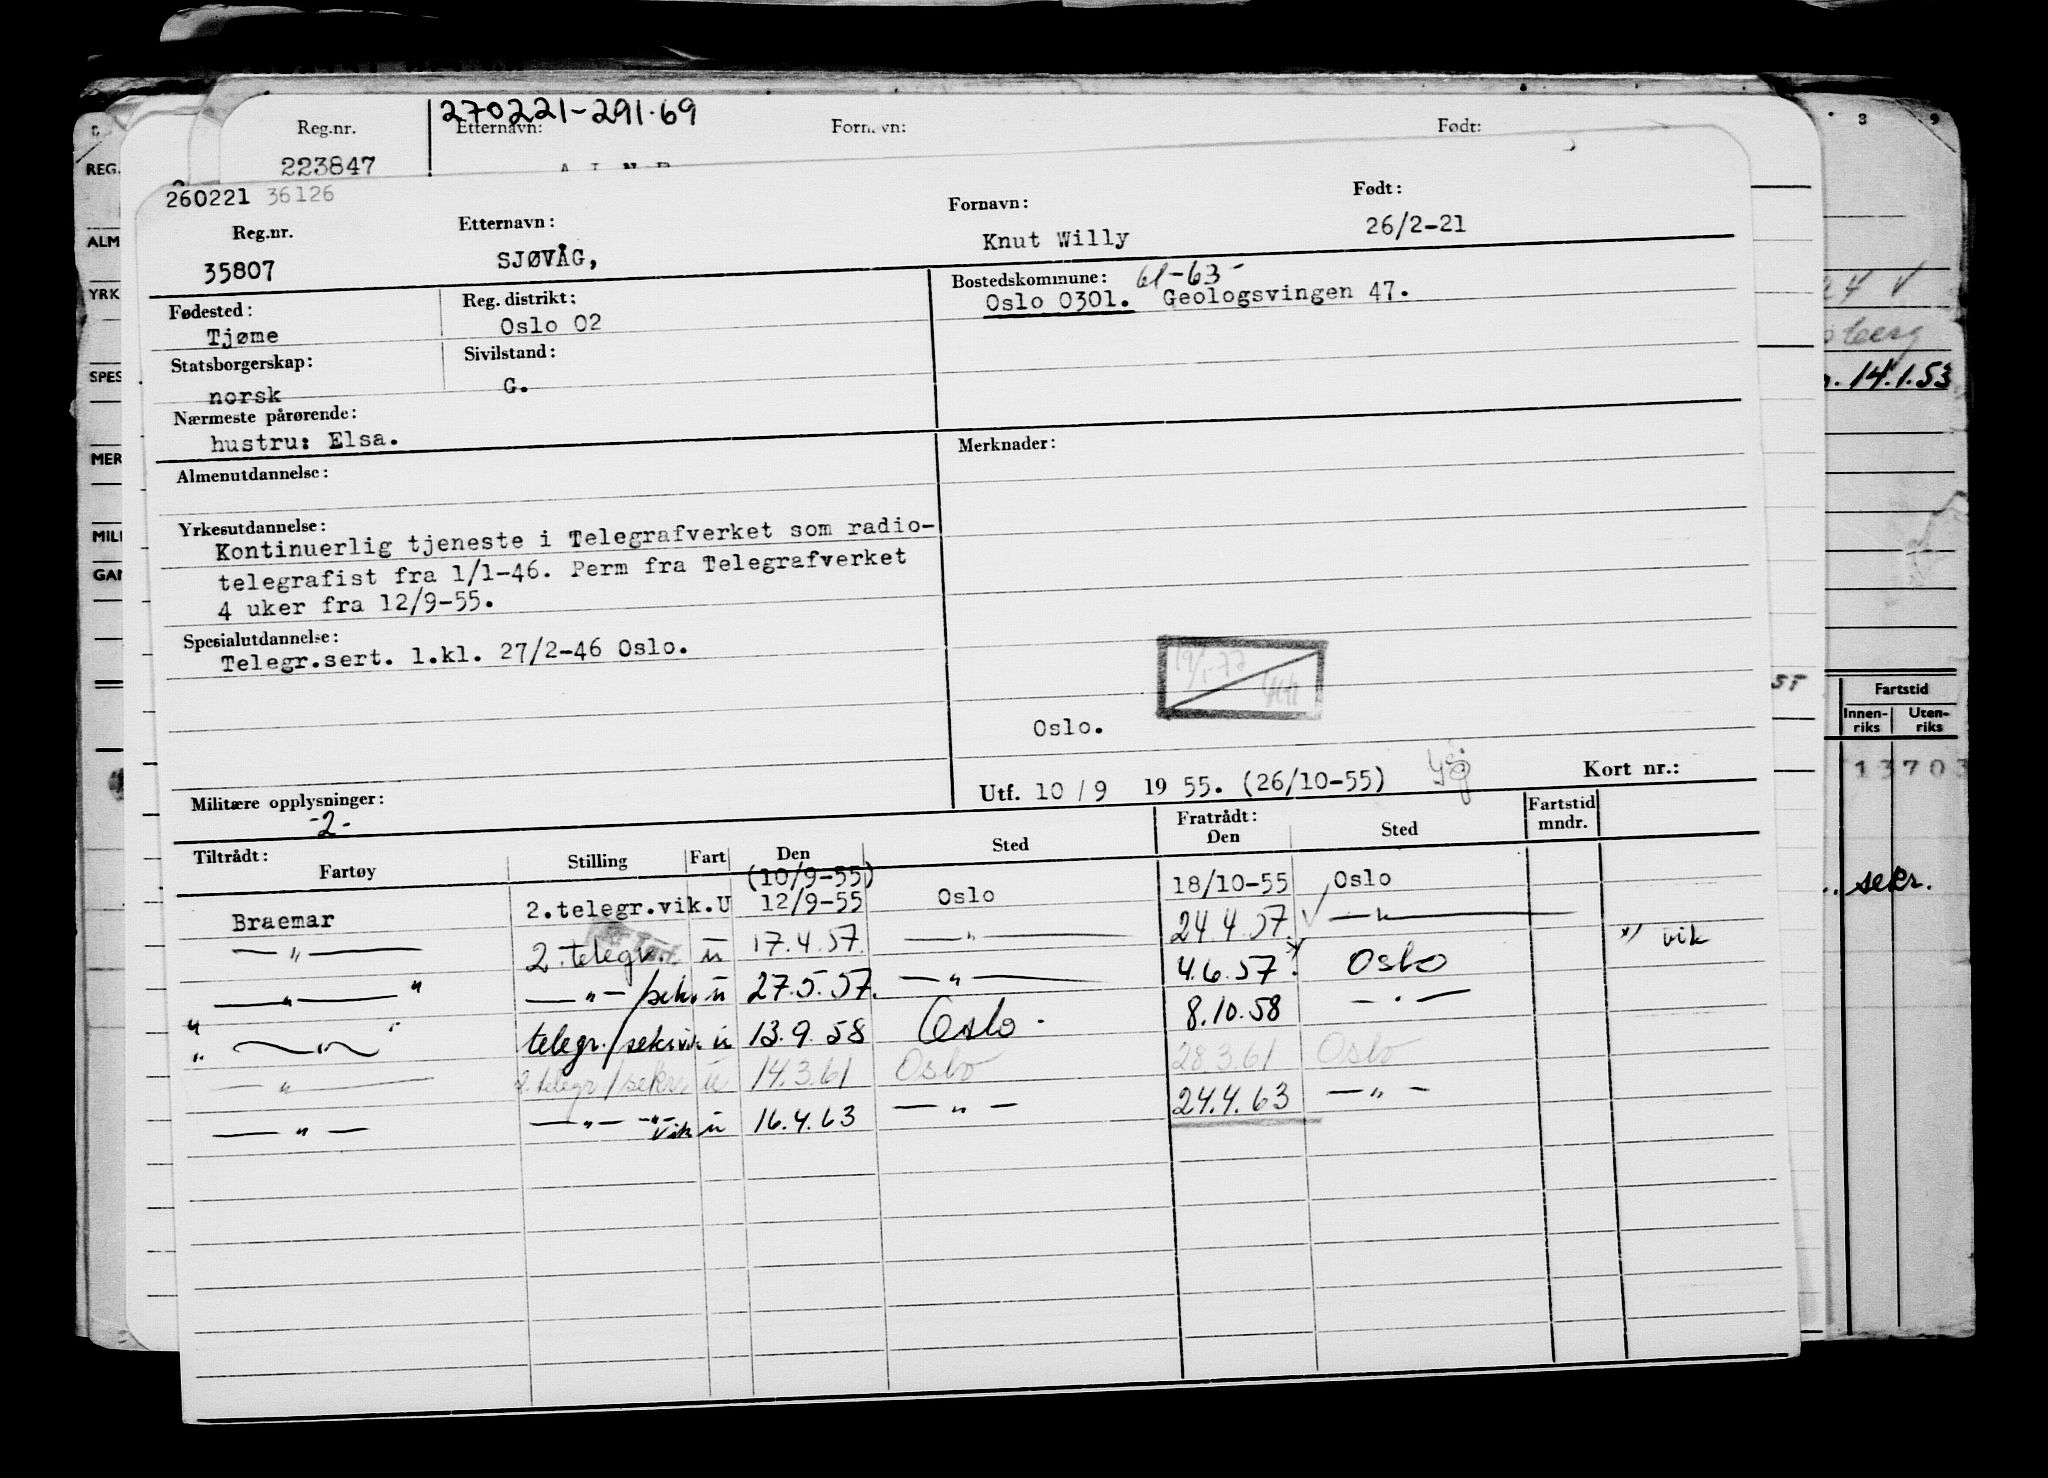 270221-291.69
Reg.nr. Etternavn: Fornavn: Født:
223847
260221 36126
Reg.nr. Etternavn: Fornavn: Født:
35807 SJØVÅG, Knut Willy 26/2-21
Fødested: Reg. distrikt: Bostedskommune: 61-63-
Tjøme Oslo 02 Oslo 0301. Geologsvingen 47.
Statsborgerskap: Sivilstand:
norsk G.
Nærmeste pårørende:
hustru: Elsa.
Almenutdannelse: Merknader:
Yrkesutdannelse:
Kontinuerlig tjeneste i Telegrafverket som radio-
telegrafist fra 1/1-46. Perm fra Telegrafverket
4 uker fra 12/9-55.
Spesialutdannelse:
Telegr.sert. 1.kl. 27/2-46 Oslo.
19/1-77
Oslo.
Utf. 10 / 9 19 55. (26/10-55) Kort nr.:
Militære opplysninger:
-2-
Tiltrådt: Fratrådt: Fartstid mndr.
Fartøy Stilling Fart Den Sted Den Sted
(10/9-55)
Braemar 2.telegr.vik. U 12/9-55 Oslo 18/10-55 Oslo
— " — 2. telegr. u 17.4.57. — " — 24.4.57. — " —
— " — " — " — /sekr. u 27.5.57. — " — 4.6.57. x) Oslo x) vik
" — " — telegr./sekr vik u 13.9.58 Oslo. 8.10.58 — " —
— " — 2. telegr/sekr. u 14.3.61 Oslo 28.3.61 Oslo
— " — — " — " — vik u 16.4.63 — " — 24.4.63 — " —
REG.
ALM
YRK
SPES
MER
MILI
GAN
8 9
berg
14.1.53
ST
Fartstid
Innen-riks Uten-riks
13703
sekr.